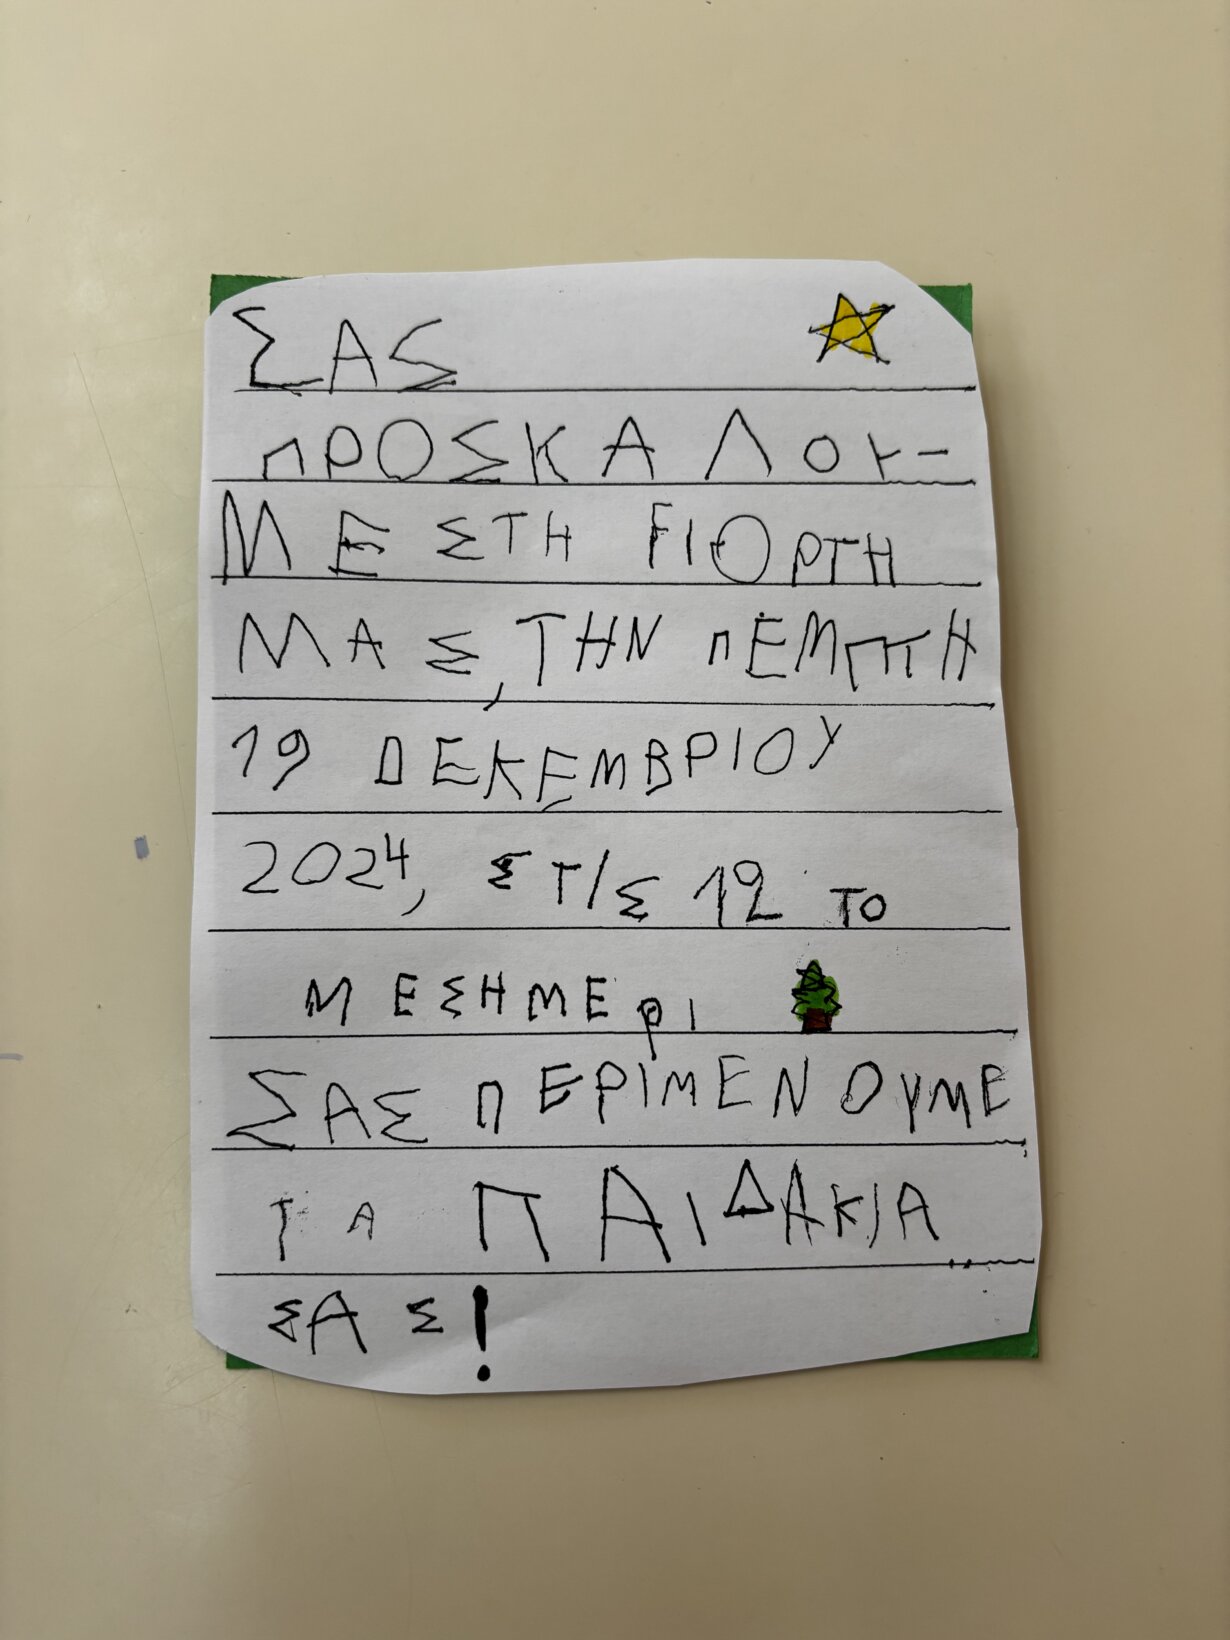 ΣΑΣ
ΠΡΟΣΚΑΛΟΥ-
ΜΕ ΣΤΗ ΓΙΟΡΤΗ
ΜΑΣ, ΤΗΝ ΠΕΜΠΤΗ
19 ΔΕΚΕΜΒΡΙΟΥ
2024, ΣΤΙΣ 12 ΤΟ
ΜΕΣΗΜΕΡΙ
ΣΑΣ ΠΕΡΙΜΕΝΟΥΜΕ
ΤΑ ΠΑΙΔΑΚΙΑ
ΣΑΣ!